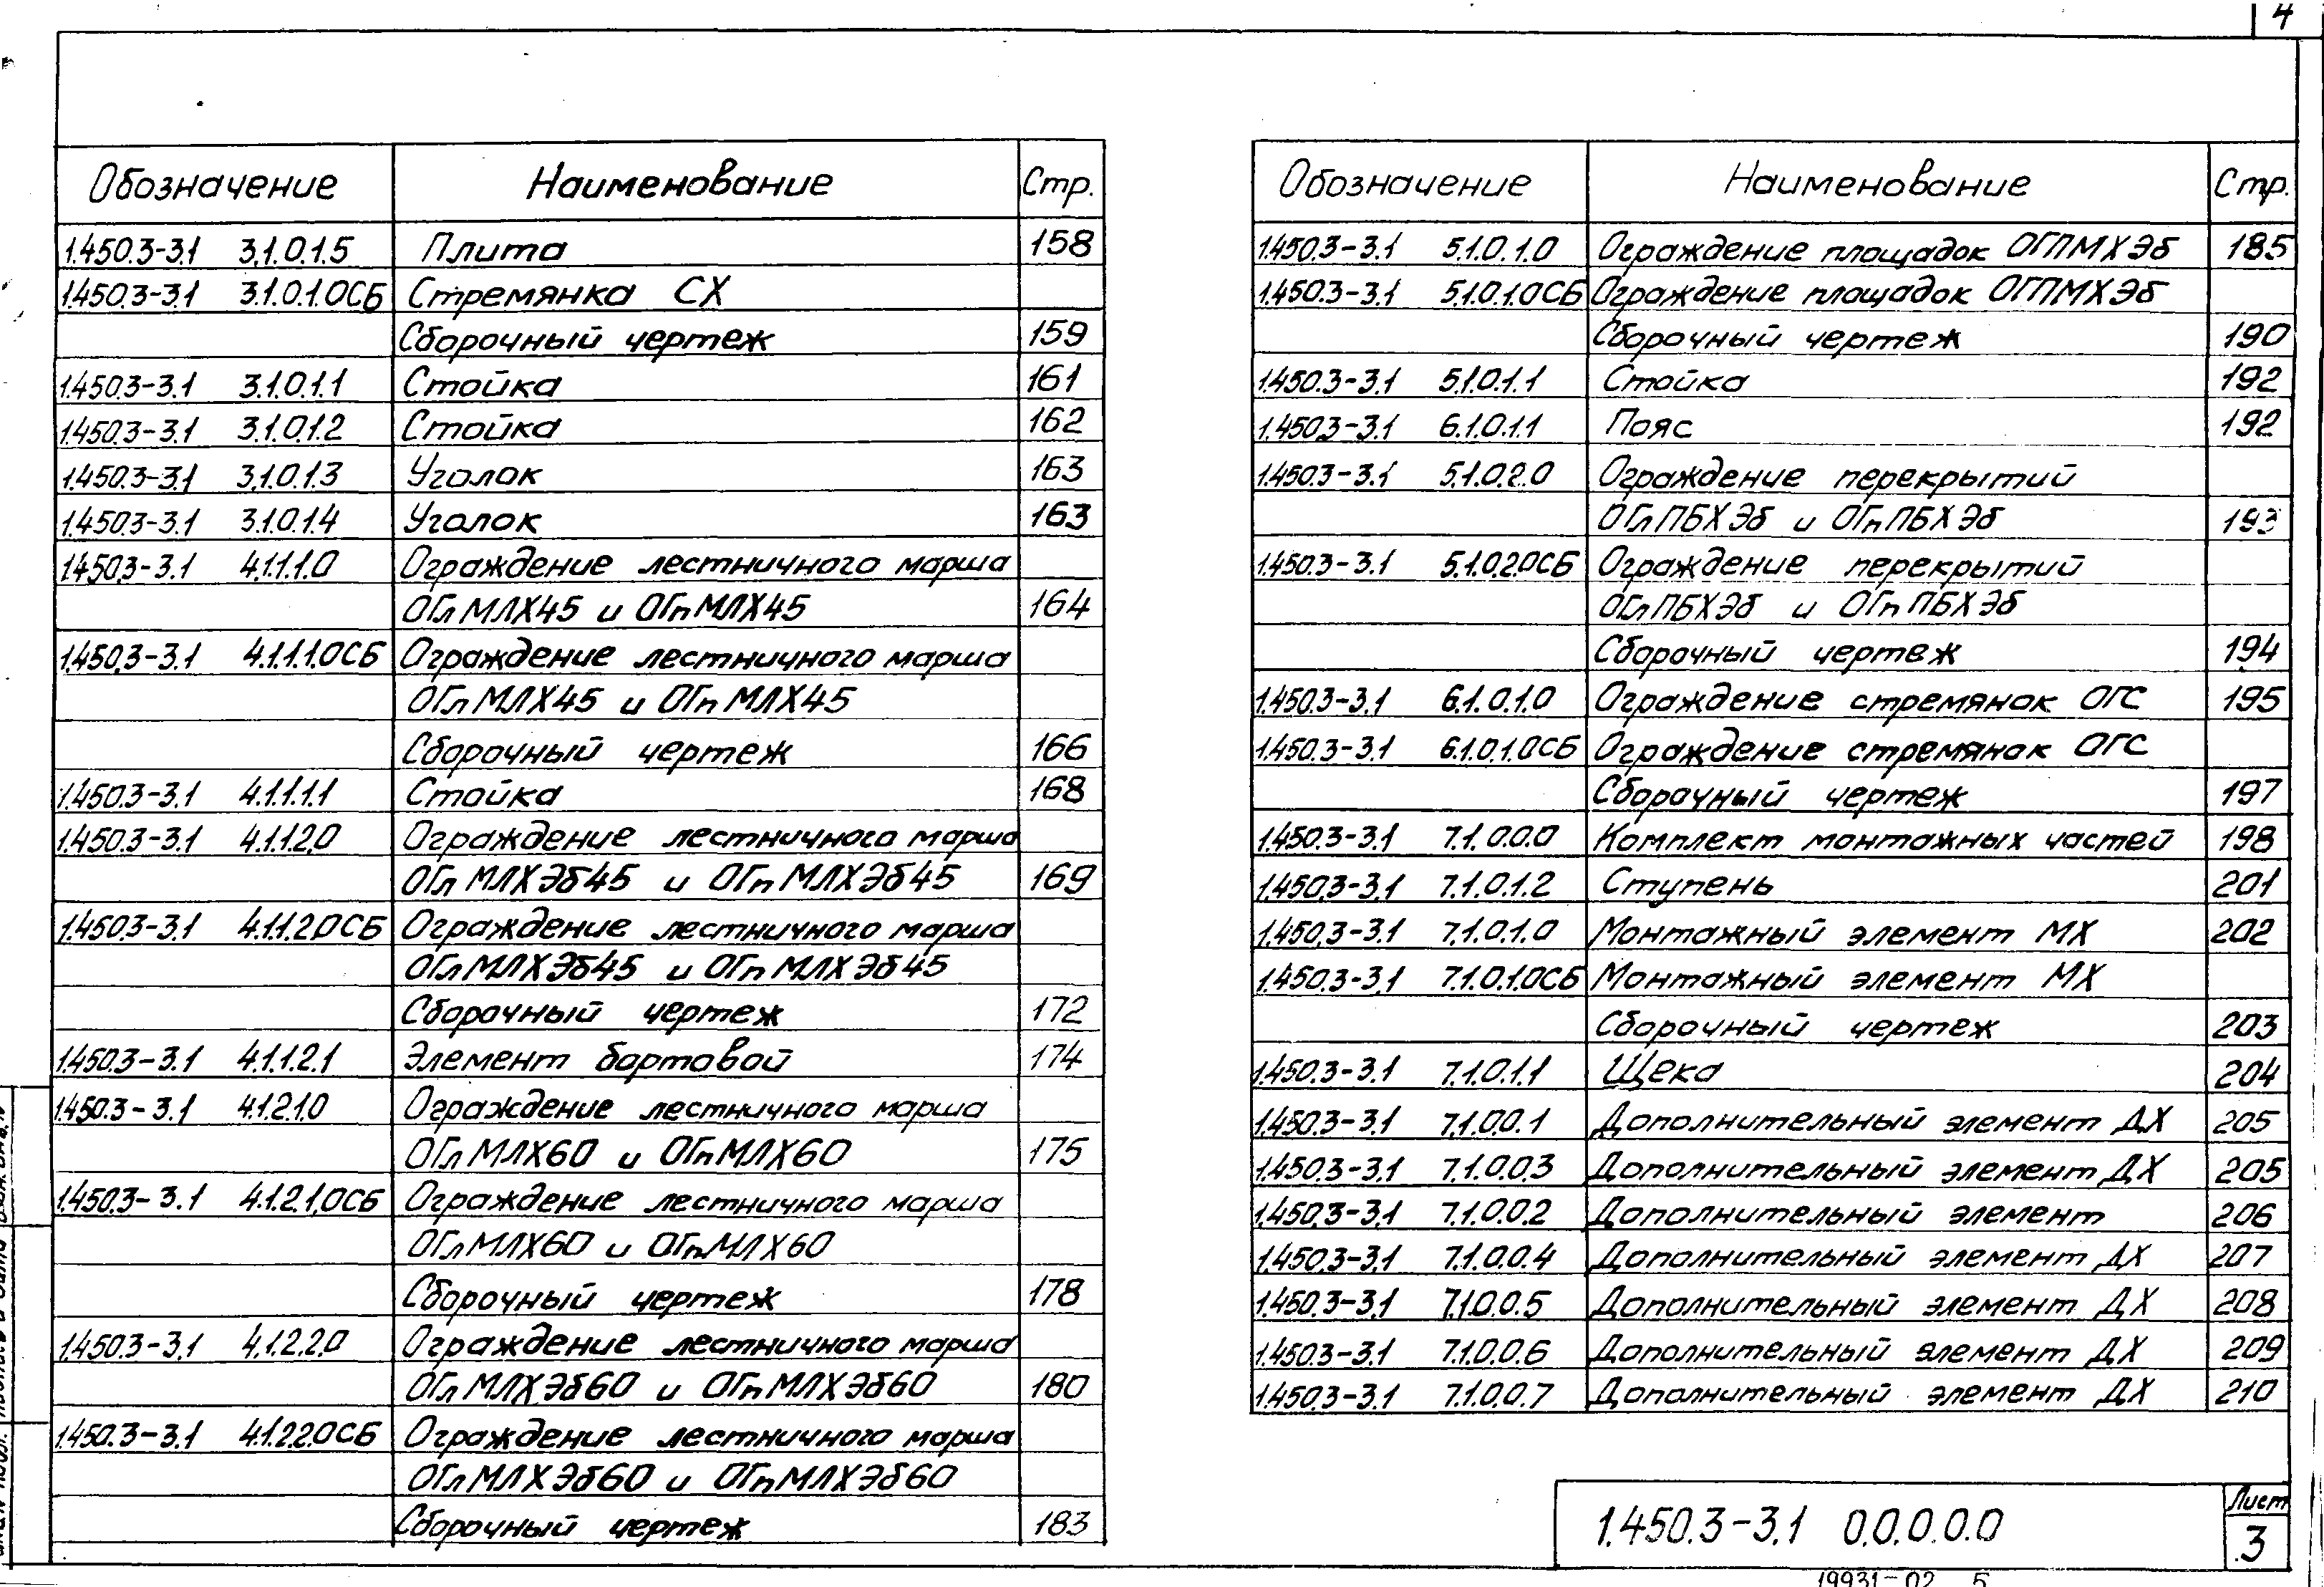 4
Обозначение Наименование Стр.
1.450.3-3.1 3.1.0.1.5 Плита 158
1.450.3-3.1 3.1.0.1.0СБ Стремянка СХ
Сборочный чертеж 159
1.450.3-3.1 3.1.0.1.1 Стойка 161
1.450.3-3.1 3.1.0.1.2 Стойка 162
1.450.3-3.1 3.1.0.1.3 Уголок 163
1.450.3-3.1 3.1.0.1.4 Уголок 163
1.450.3-3.1 4.1.1.1.0 Ограждение лестничного марша
ОГлМЛХ45 и ОГпМЛХ45 164
1.450.3-3.1 4.1.1.1.0СБ Ограждение лестничного марша
ОГлМЛХ45 и ОГпМЛХ45
Сборочный чертеж 166
1.450.3-3.1 4.1.1.1.1 Стойка 168
1.450.3-3.1 4.1.1.2.0 Ограждение лестничного марша
ОГлМЛХЭб45 и ОГпМЛХЭб45 169
1.450.3-3.1 4.1.1.2.0СБ Ограждение лестничного марша
ОГлМЛХЭб45 и ОГпМЛХЭб45
Сборочный чертеж 172
1.450.3-3.1 4.1.1.2.1 Элемент бортовой 174
1.450.3-3.1 4.1.2.1.0 Ограждение лестничного марша
ОГлМЛХ60 и ОГпМЛХ60 175
1.450.3-3.1 4.1.2.1.0СБ Ограждение лестничного марша
ОГлМЛХ60 и ОГпМЛХ60
Сборочный чертеж 178
1.450.3-3.1 4.1.2.2.0 Ограждение лестничного марша
ОГлМЛХЭб60 и ОГпМЛХЭб60 180
1.450.3-3.1 4.1.2.2.0СБ Ограждение лестничного марша
ОГлМЛХЭб60 и ОГпМЛХЭб60
Сборочный чертеж 183
Обозначение Наименование Стр.
1.450.3-3.1 5.1.0.1.0 Ограждение площадок ОГПМХЭб 185
1.450.3-3.1 5.1.0.1.0СБ Ограждение площадок ОГПМХЭб
Сборочный чертеж 190
1.450.3-3.1 5.1.0.1.1 Стойка 192
1.450.3-3.1 6.1.0.1.1 Пояс 192
1.450.3-3.1 5.1.0.2.0 Ограждение перекрытий
ОГлПБХЭб и ОГпПБХЭб 193
1.450.3-3.1 5.1.0.2.0СБ Ограждение перекрытий
ОГлПБХЭб и ОГпПБХЭб
Сборочный чертеж 194
1.450.3-3.1 6.1.0.1.0 Ограждение стремянок ОГС 195
1.450.3-3.1 6.1.0.1.0СБ Ограждение стремянок ОГС
Сборочный чертеж 197
1.450.3-3.1 7.1.0.0.0 Комплект монтажных частей 198
1.450.3-3.1 7.1.0.1.2 Ступень 201
1.450.3-3.1 7.1.0.1.0 Монтажный элемент МХ 202
1.450.3-3.1 7.1.0.1.0СБ Монтажный элемент МХ
Сборочный чертеж 203
1.450.3-3.1 7.1.0.1.1 Щека 204
1.450.3-3.1 7.1.0.0.1 Дополнительный элемент ДХ 205
1.450.3-3.1 7.1.0.0.3 Дополнительный элемент ДХ 205
1.450.3-3.1 7.1.0.0.2 Дополнительный элемент 206
1.450.3-3.1 7.1.0.0.4 Дополнительный элемент ДХ 207
1.450.3-3.1 7.1.0.0.5 Дополнительный элемент ДХ 208
1.450.3-3.1 7.1.0.0.6 Дополнительный элемент ДХ 209
1.450.3-3.1 7.1.0.0.7 Дополнительный элемент ДХ 210
1.450.3-3.1 0.0.0.0.0
Лист
3
19931-02 5